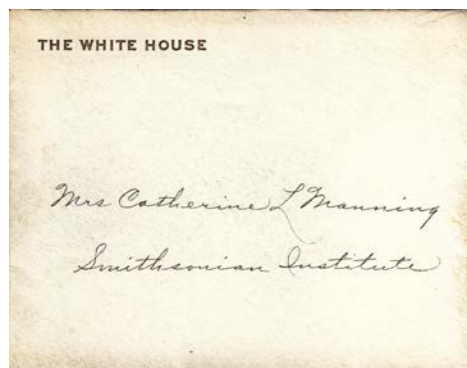 THE WHITE HOUSE
Mrs Catherine L Manning
Smithsonian Institute